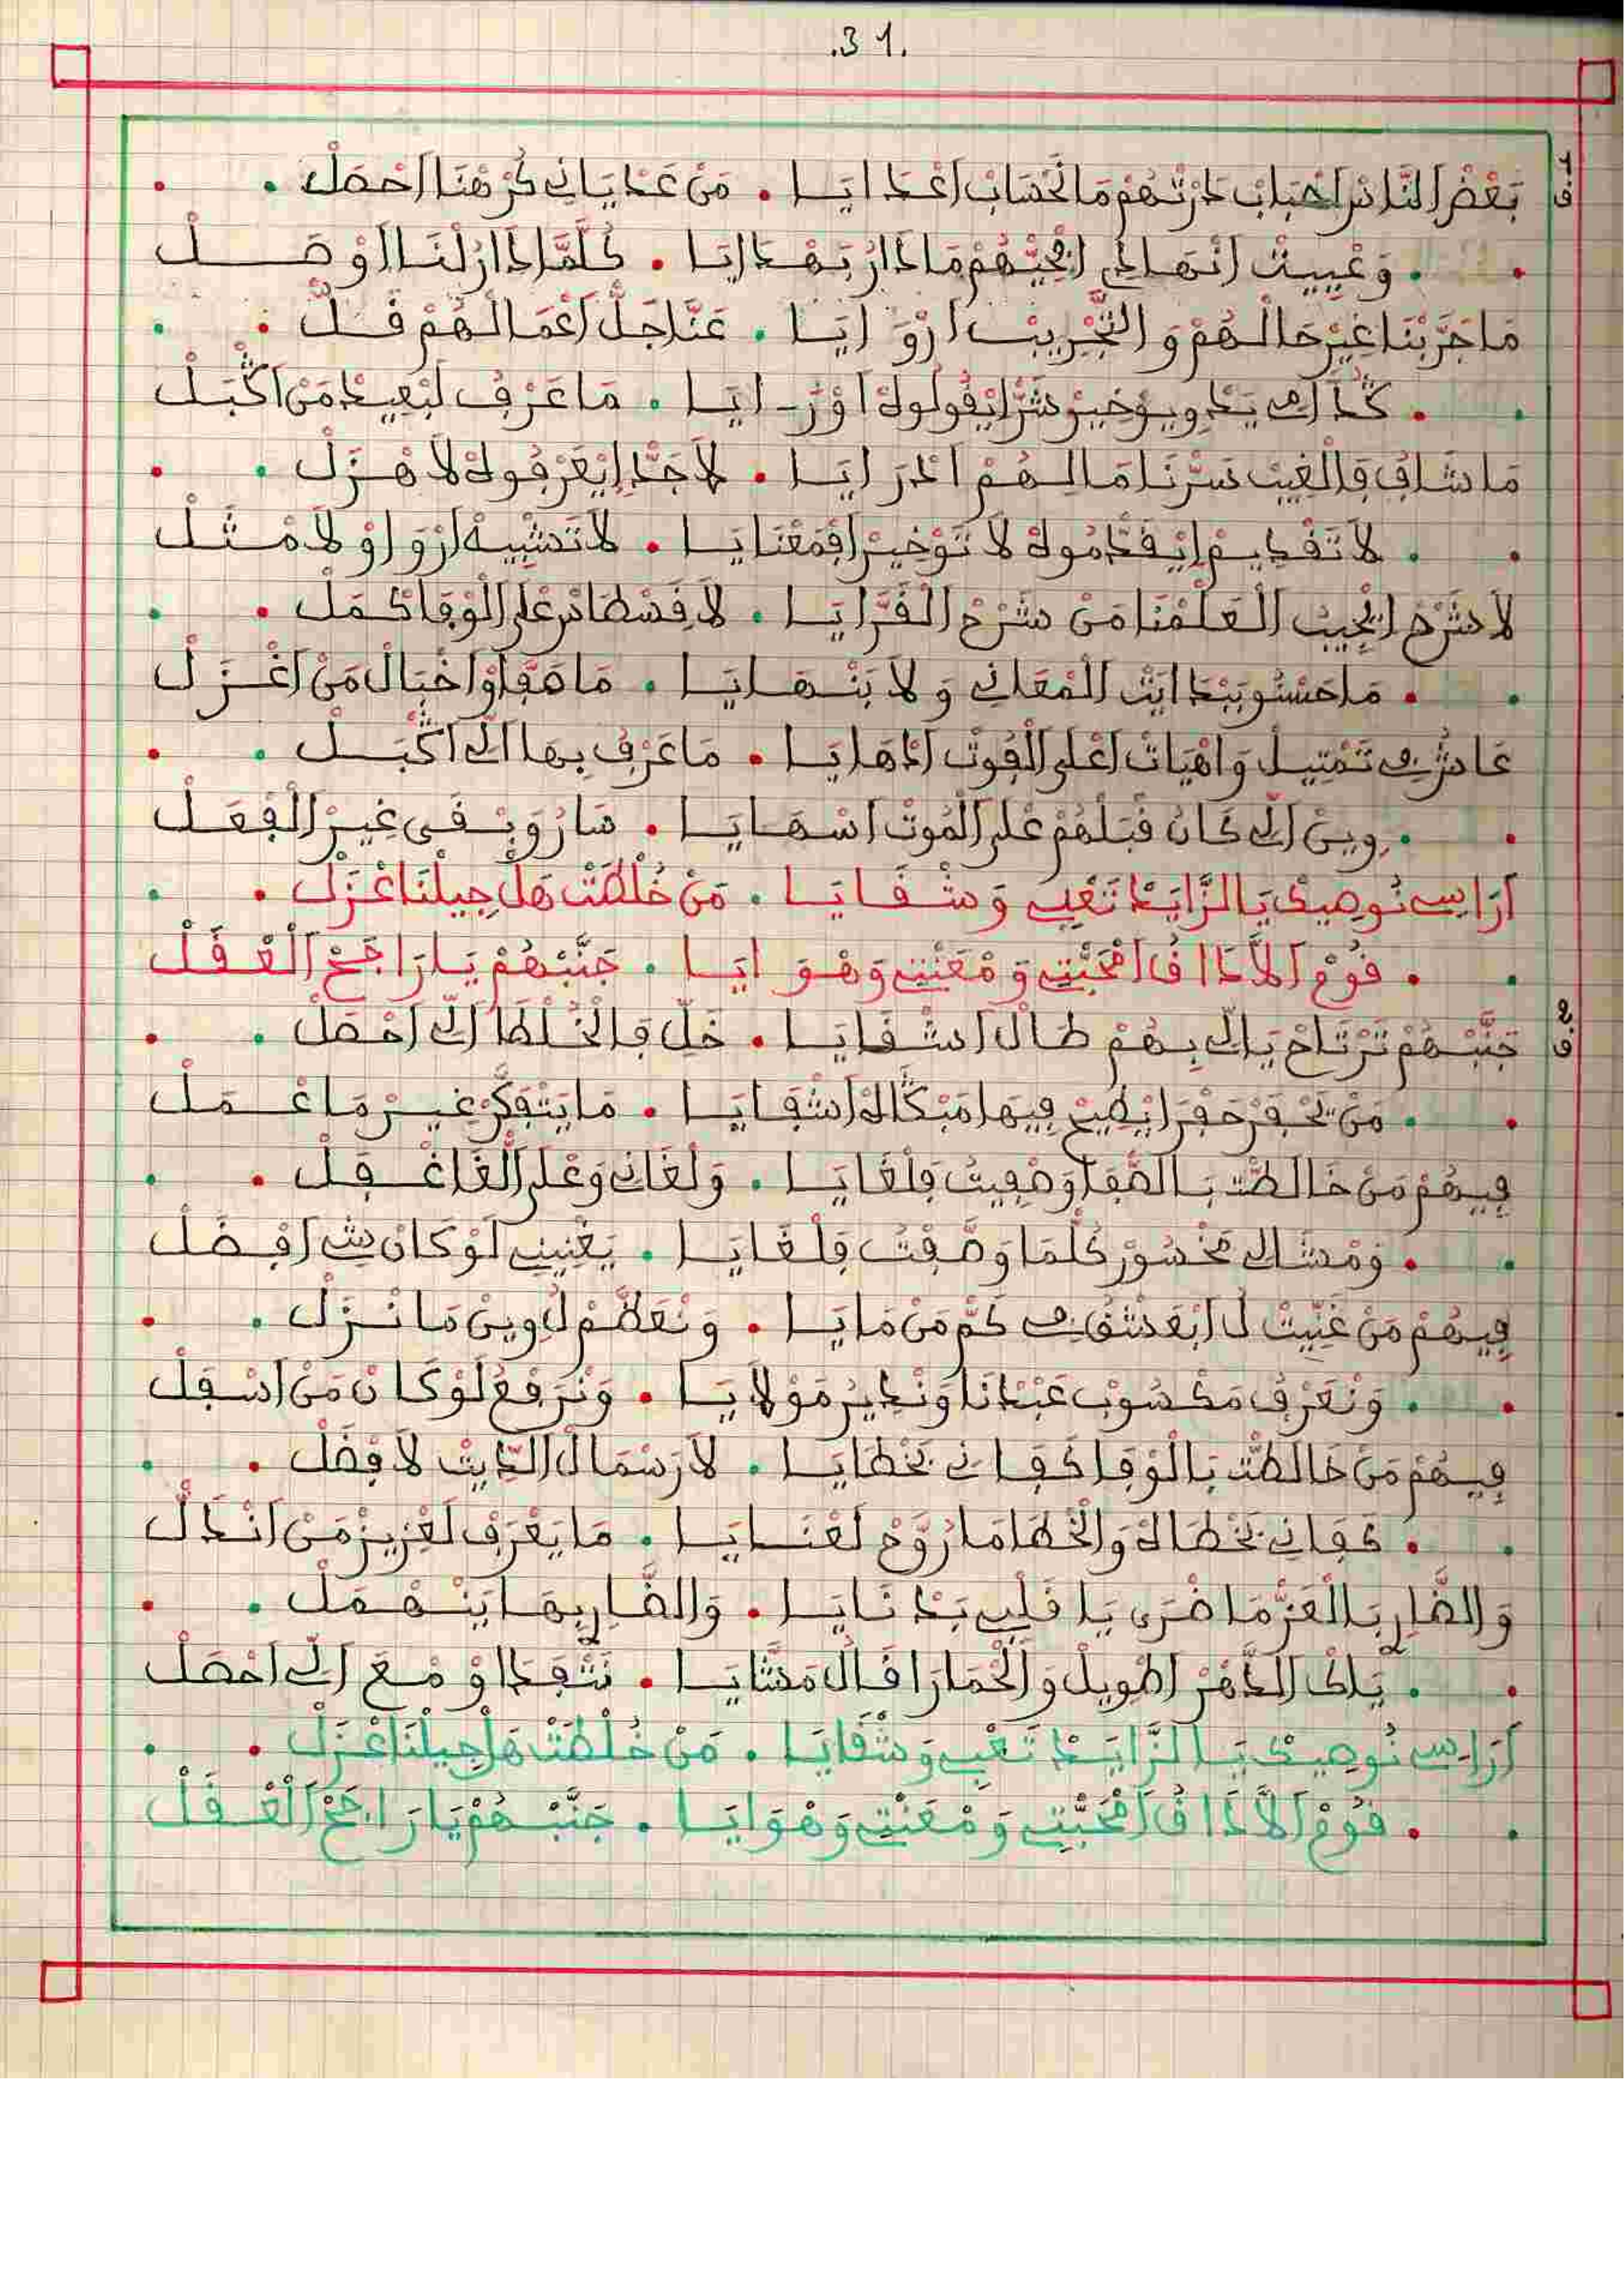 .31.
ف1 بَعْضْ النَّاسْ احْبَابْ دَرْتْهُمْ مَا نَحْسَابْ اعْدَايَا . مَنْ عَدْيَانِي كُرْهْنَا احْصَلْ
وَعْيِيتْ انْهَادِي انْحِيبْهُمْ مَا دَارُ بَهْدَايَا . كُلَّمَّا دَارْ لْنَا اوْصَلْ
مَا جَرَّبْنَا غِيرْ حَالْهُمْ وَالتَّجْرِيبْ ارْوَايَا . عَنَّا جَلّْ اعْمَالْهُمْ فَلّْ
كْدَّابِينْ يَدْوِيوْ خِيرْ شَرّْ ايْقُولُوهْ اوْرَايَا . مَا عَرْفْ لَبْعِيدْ مَنْ اڭْبَلْ
مَا شَافْ فَالْغِيبْ سَرّْنَا مَالِهُمْ ادْرَايَا . لاَ جَدّْ ايْعَرْفُوهْ لاَ هْزَلْ
لاَ تَقْدِيمْ ايْقَدّْمُوهْ لاَ تَوْخِيرْ افْمَعْنَايَا . لاَ تَشْبِيهْ ارْوَاوْ لاَ مْثَلْ
لاَ شَرْحْ ايْجِيبْ الْعَلْمْنَا مَنْ شَرْحْ الْقَرَّايَا . لاَ قَسْطَاسْ عْلَى الْوْفَا كْمَلْ
مَا حَسّْو بَبْدَايْتْ الْمْعَانِي وَلاَ بَنْهَايَا . مَا صَفَّاوْا خْبَالْ مَنْ اغْزَلْ
عَايْشِينْ تَمْتِيلْ وَاهْيَاتْ اعْلَى الْقُوتْ ادْهَايَا . مَا عَرْفْ بِهَا الِّي اڭْبَلْ
وِينْ الِّي كَانْ قَبْلْهُمْ عْلَى الْمُوتْ اسْهَايَا . سَارْ وَبْقَى غِيرْ الْفْعَلْ
آرَاسِي نُوصِيكْ يَالزَّايَدْ تَعْبِي وَشْقَايَا . مَنْ خُلْطَتْ هَلْ جِيلْنَا عْزَلْ
قُومْ الاَّدَاقْ امْحَبّْتِي وَمْعَنْتِي وَهْوَايَا . جَنَّبْهُمْ يَا رَاجَحْ الْعْقَلْ
ف2 جَنَّبْهُمْ تَرْتَاحْ يَالِّي بِهُمْ طَالْ اشْقَايَا . خَلّْ فَالْخُلْطَا الِّي احْصَلْ
مَنْ يَحْفَرْ حَفْرَا يْطِيحْ فِيهَا مَبْكَاهْ اشْفَايَا . مَا يَتْفَكَّرْ غِيرْ مَا عْمَلْ
فِيهُمْ مَنْ خَالَطْتْ بَالصّْفَا وَصْفِيتْ فَلْغَايَا . وَلْغَانِي وَعْلَى الْغَا غْفَلْ
وَمْشَالِي مَخْسُورْ كُلّْمَا وَصّْفْتْ فَلْغَايَا . يَغْنِينِي لَوْ كَانْ بِيَّ افْضَلْ
فِيهُمْ مَنْ غَنِّيتْ لُ ابْعَشْقِي كَمّْ مَنْ مَايَا . وَنْعَظَّمْ لُ وِينْ مَا نْزَلْ
وَنْعَرْفْ مَكْسُوبْ عَبْدْنَا وَنْدِيرْ مَوْلاَيَا . وَنْرَفْعُ لَوْ كَانْ مَنْ اسْفَلْ
فِيهُمْ مَنْ خَالَطْتْ بَالْوْفَا كَافَانِي بَخْطَايَا . لاَ رَسْمَالْ ادِّيتْ لاَ فْضَلْ
كَافَانِي بَخْطَاهْ وَالْخْطَا مَا رَوَّحْ لَغْنَايَا . مَا يَعْرَفْ لَعْزِيزْ مَنْ انْذَالْ
وَالضَّارِي بَالْعَزّْ مَا ضْرَى يَا قَلْبِي بَدْنَايَا . وَالضَّارِي بِهَا يَنْهْمَلْ
يَاكْ الدّْهَرْ اطْوِيلْ وَالْحْمَارَا قَالْ مَشَّايَا . نَتْفَدَاوْ مْعَ الِّي احْصَلْ
آرَاسِي نُوصِيكْ يَالزَّايَدْ تَعْبِي وَشْقَايَا . مَنْ خُلْطَتْ هَلْ جِيلْنَا عْزَلْ
قُومْ الاَّدَاقْ امْحَبّْتِي وَمْعَنْتِي وَهْوَايَا . جَنَّبْهُمْ يَا رَاجَحْ الْعْقَلْ